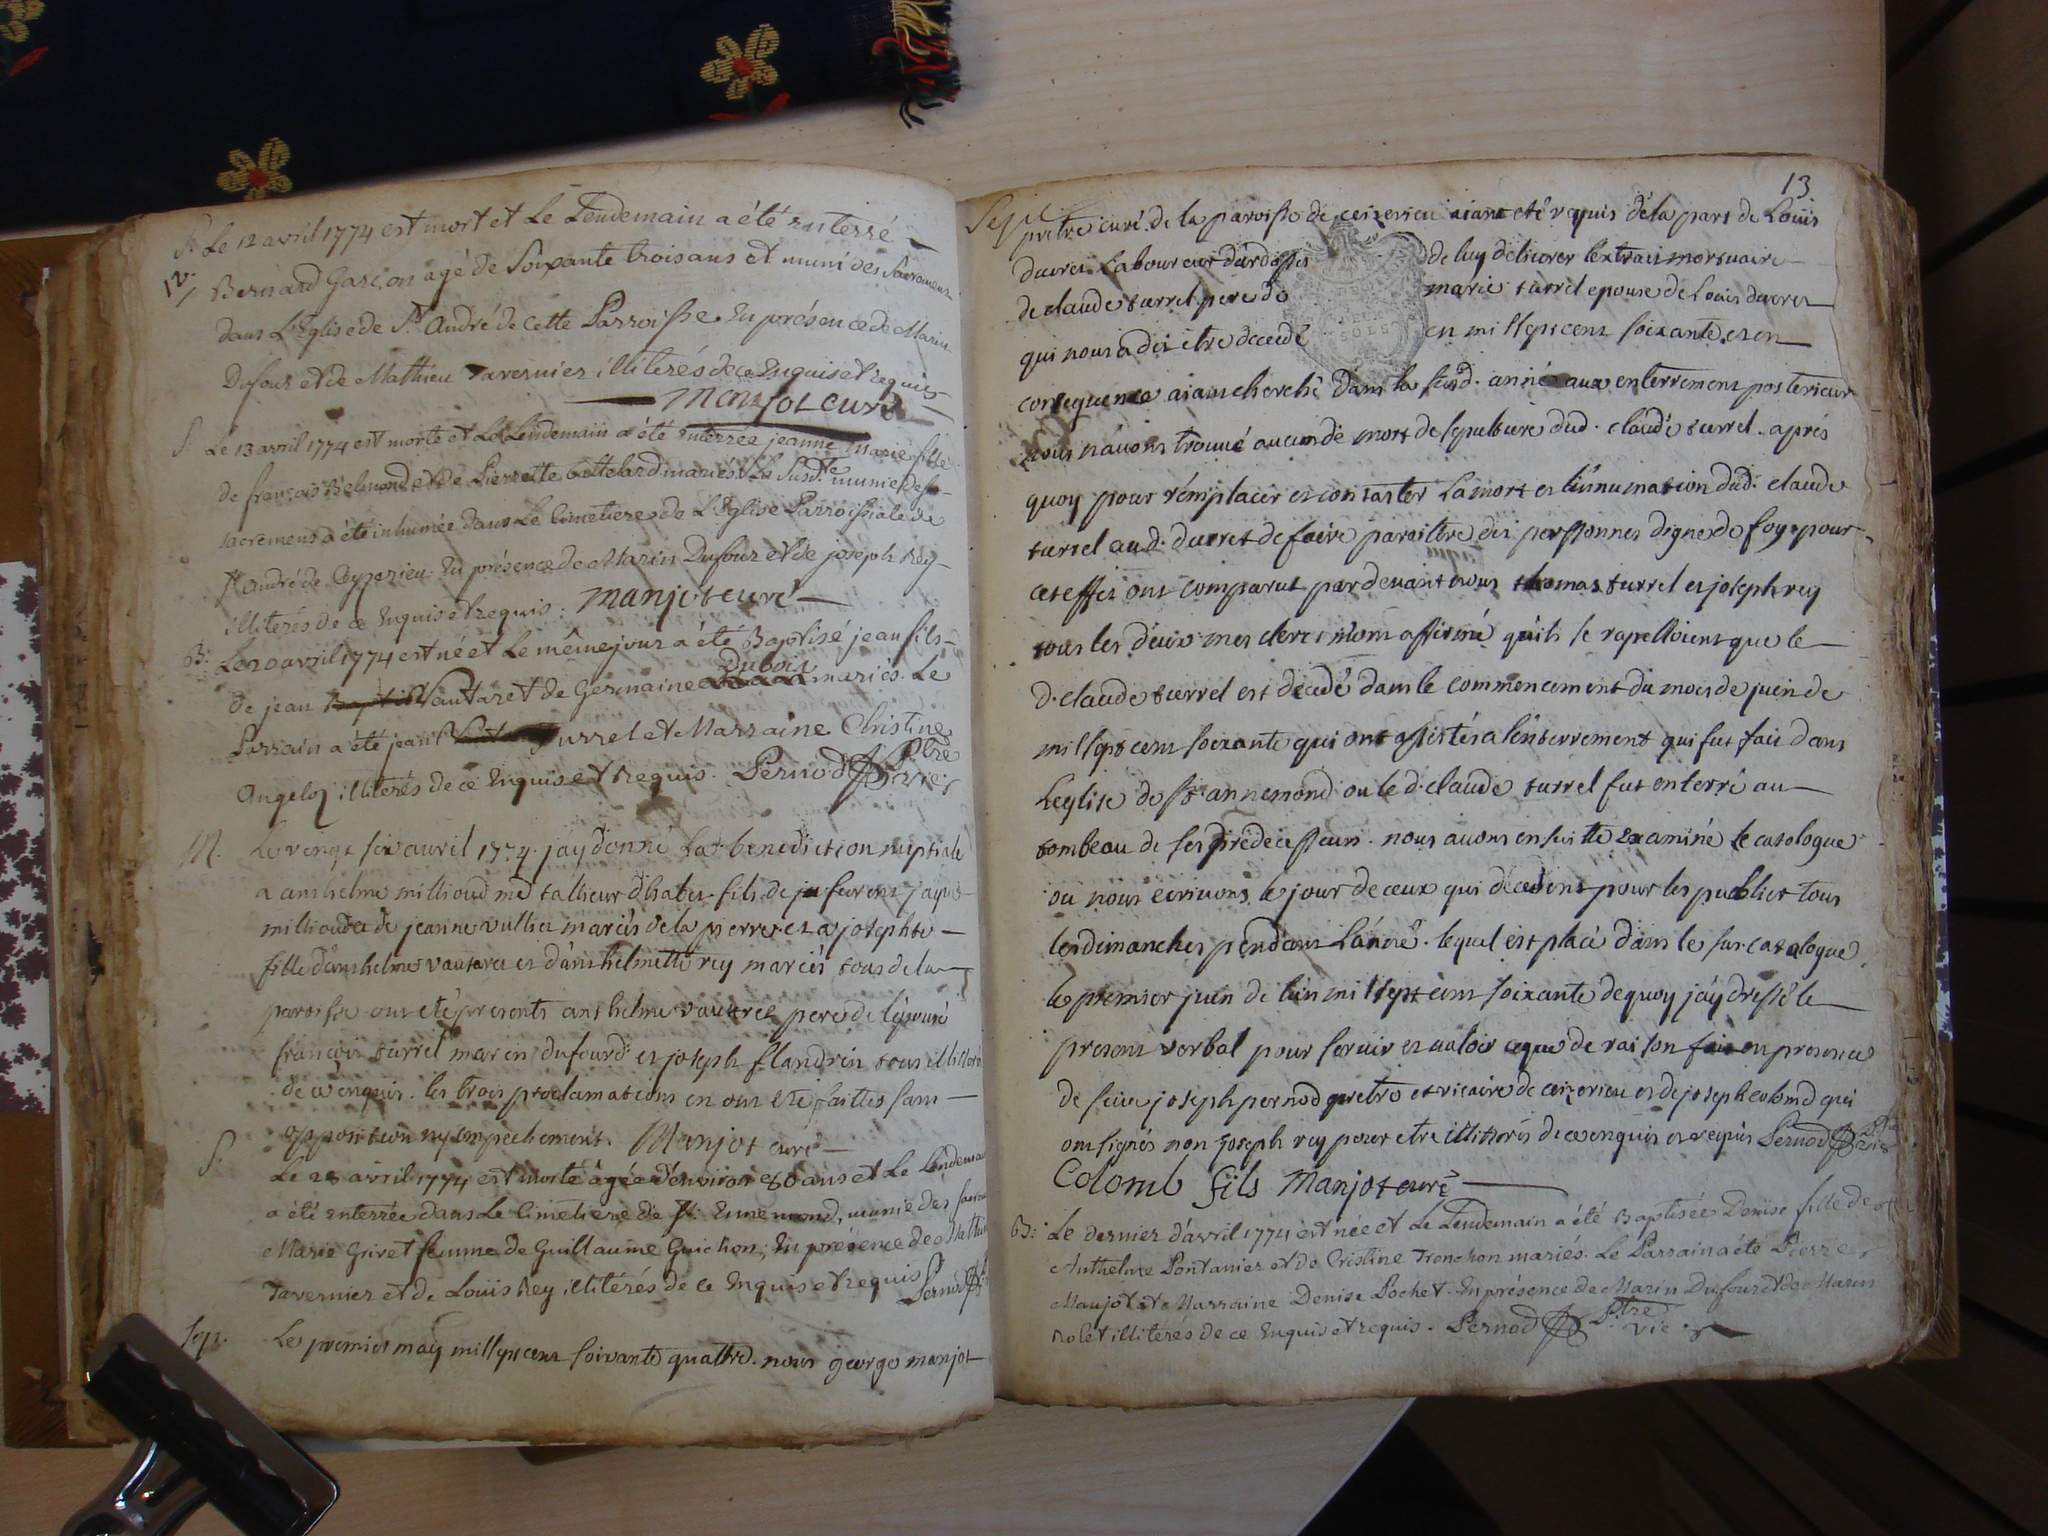 S. Le 12 avril 1774 est mort et Le Lendemain a été enterré
12. Bernard Garçon agé de Soixante trois ans et muni des Sacremens
dans L'Eglise de St. André de Cette Parroisse En présence de Marin
Dufour et de Mathieu Tavernier illitérés de ce Enquis et requis
Manjot curé
S. Le 13 avril 1774 est morte et Le Lendemain a été Enterrée jeanne Marie fille
de français Belmond et de Pierrette mariés. La Susdte munie de
sacremens a été inhumée dans Le Cimetiere de L'Eglise Parroissiale de
St André de Ceyzerieu En présence de Marin Dufour et de joseph Rey
illitérés de ce Enquis et requis. Manjot curé
B: Le 20 avril 1774 est né et Le même jour a été Baptisé jean fils
de jean Vautaret de Germaine Dubois mariés. Le
Parrain a été jean Turrel et Marraine Christine
Angeloz illitérés de ce Enquis et Requis. Pernod Ptre Vic
M. Le vengt six avril 1774 jay donné La benediction nuptiale
a anthelme millioud md tallieur dhabit fils de jaques
millioud et de jeanne vullier mariés de la pierre et a josephte
fille danthelme vautaret et danthelmette rey mariés tous de la
paroisse ont eté presents anthelme vautaret pere de lépouse
françois turrel marin dufour et joseph flandrin tous illitteré
de ce enquis. les trois proclamations en ont eté faittes sans
opposition ny empechement. Manjot curé
S. Le 28 avril 1774 est morte agée d'environ 60 ans et Le Lendemain
a été enterrée dans Le Cimetiere de St. Ennemond, munie des sacrem
Marie Grivet femme de Guillaume Guichon; En présence de Mathieu
Tavernier et de Louis Rey illitérés de ce Enquis et requis Pernod
Sep. Le premier may mil sept cent soixante quattre. nous george manjot
13
Sep pretre curé de la paroisse de ceizerieu aiant eté requis de la part de Louis
ducret Laboureur de luy delivrer lextrait mortuaire
de claude turrel pere de marie turrel epouse de Louis ducret
qui nous a dit etre decedé en mil sept cent soixante et en
consequence aiant cherché dans la susd. année aux enterrement posterieur
nous n'avons trouvé aucun de mort de sepulture dud. claude turrel. aprés
quoy pour remplacer et constater La mort et l'innumation dud. claude
turrel aud. ducret de faire paroittre des perssonnes digne de foy. pour
cet effet ont comparut pardevant nous thomas turrel et joseph rey
tous les deux mes clercs m'ont affirmé qu'ils se rapelloient que le
d. claude turrel est decedé dans le commencement du mois de juin de
mil sept cent soixante qui ont assistés a lenterrement qui fut fait dans
Leglise de st annemond ou le d. claude turrel fut enterré au
tombeau de ses prédécesseurs. nous avons ensuitte examiné le catologue
ou nous ecrivons le jour de ceux qui decedent pour les publier tous
les dimanches pendant Lannée. lequel est placé dans le sus. catalogue
le premier juin de lan mil sept cent soixante de quoy jáy dressé le
present verbal pour servir et valoir a que de raison fait en presence
de sieur joseph pernod pretre et vicaire de ceizerieu et de joseph colomb qui
ont signés non joseph rey pour etre illitterés de ce enquis et requis Pernod Ptre Vic
Colomb fils Manjot curé
B: Le dernier d'avril 1774 est née et Le Lendemain a été Baptisée Denise fille de
Anthelme Pontanier et de Cristine Tronchon mariés. Le Parrain a été Pierre
Manjot et Marraine Denise Pochet. En présence de Marin Dufour et de Marin
Rolet illitérés de ce Enquis et requis. Pernod Ptre Vic